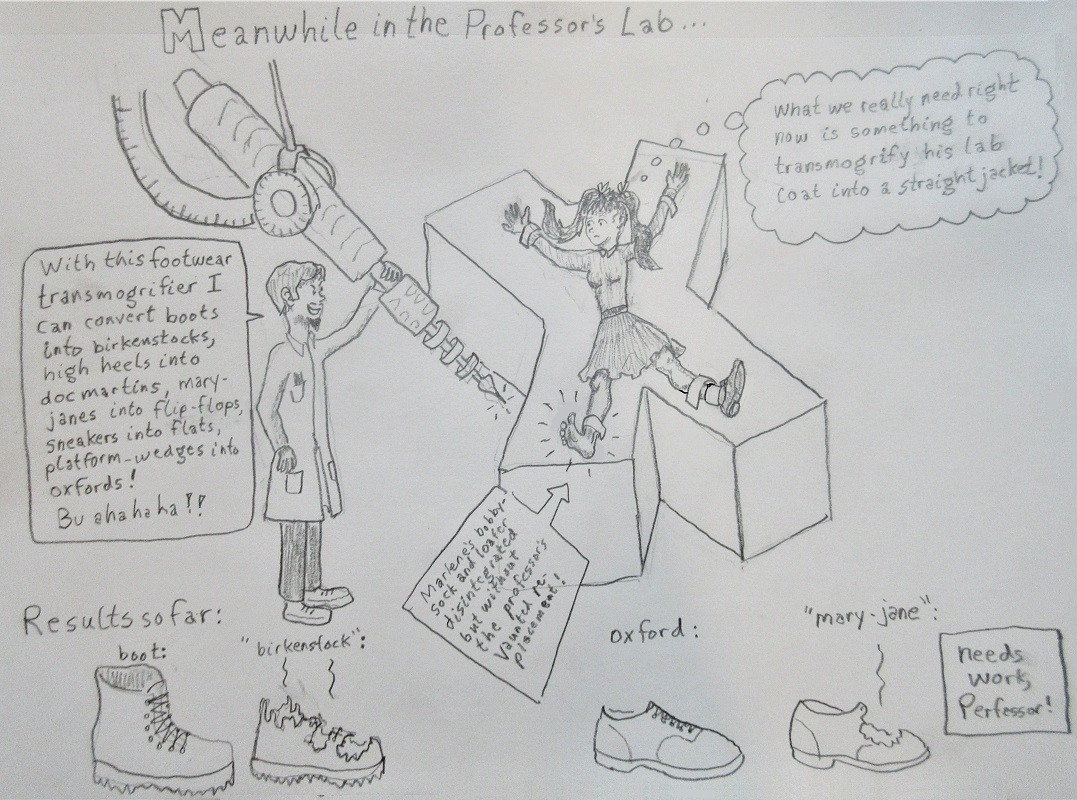 Meanwhile in the Professor's Lab...
What we really need right
now is something to
transmogrify his lab
coat into a straightjacket!
With this footwear
transmogrifier I
can convert boots
into birkenstocks,
high heels into
doc martins, mary-
janes into flip-flops,
sneakers into flats,
platform-wedges into
oxfords!
Buahahaha!!
Marlene's bobby-
sock and loafer
disintegrated
but without
the professor's
vaunted re-
placement!
Results so far:
boot:
"birkenstock":
oxford:
"mary-jane":
needs
work,
Perfessor!